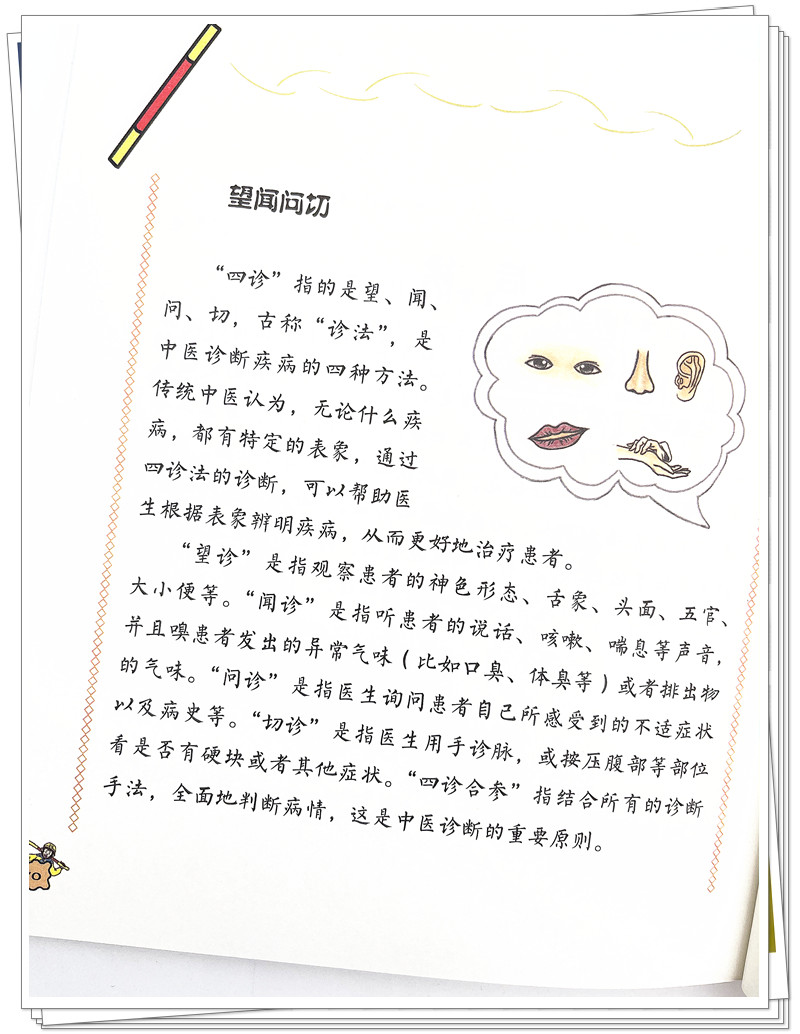 望闻问切
“四诊”指的是望、闻、
问、切，古称“诊法”，是
中医诊断疾病的四种方法。
传统中医认为，无论什么疾
病，都有特定的表象，通过
四诊法的诊断，可以帮助医
生根据表象辨明疾病，从而更好地治疗患者。
“望诊”是指观察患者的神色形态、舌象、头面、五官、
大小便等。“闻诊”是指听患者的说话、咳嗽、喘息等声音，
并且嗅患者发出的异常气味（比如口臭、体臭等）或者排出物
的气味。“问诊”是指医生询问患者自己所感受到的不适症状
以及病史等。“切诊”是指医生用手诊脉，或按压腹部等部位
看是否有硬块或者其他症状。“四诊合参”指结合所有的诊断
手法，全面地判断病情，这是中医诊断的重要原则。